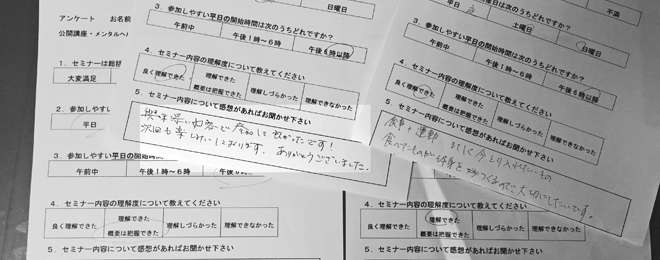 アンケート　お名前
公開講座・メンタルヘ
1．セミナーは総括
大変満足
2．参加しやすい
平日
3．参加しやすい平日の開始時間は
午前中　午後1時～6時
4．セミナー内容の理解度について教えてください
良く理解できた　理解できた　概要は把握できた　理解しづらかった　理解できなかった
5．セミナー内容について感想があればお聞かせ下さい
日曜日
3．参加しやすい平日の開始時間は次のうちどれですか？
午前中　午後1時～6時　午後6時以降
4．セミナー内容の理解度について教えてください
良く理解できた　理解できた　概要は把握できた　理解しづらかった　理解できなかった
5．セミナー内容について感想があればお聞かせ下さい
興味深い内容で参加して良かったです！
次回も楽しみにしております。ありがとうございました。
不満
平日　土曜日　日曜日
3．参加しやすい平日の開始時間は次のうちどれですか？
午前中　午後1時～6時　午後6時以降
4．セミナー内容の理解度について教えてください
良く理解できた　理解できた　概要は把握できた　理解しづらかった　理解できなかった
5．セミナー内容について感想があればお聞かせ下さい
食事、運動
食べたものが　身を　つくるので、大切にしたいです。
4．セミナー内容の理解度について教えてください
良く理解できた　理解できた　概要は把握できた　理解しづらかった　理解できなかった
5．セミナー内容について感想があればお聞かせ下さい